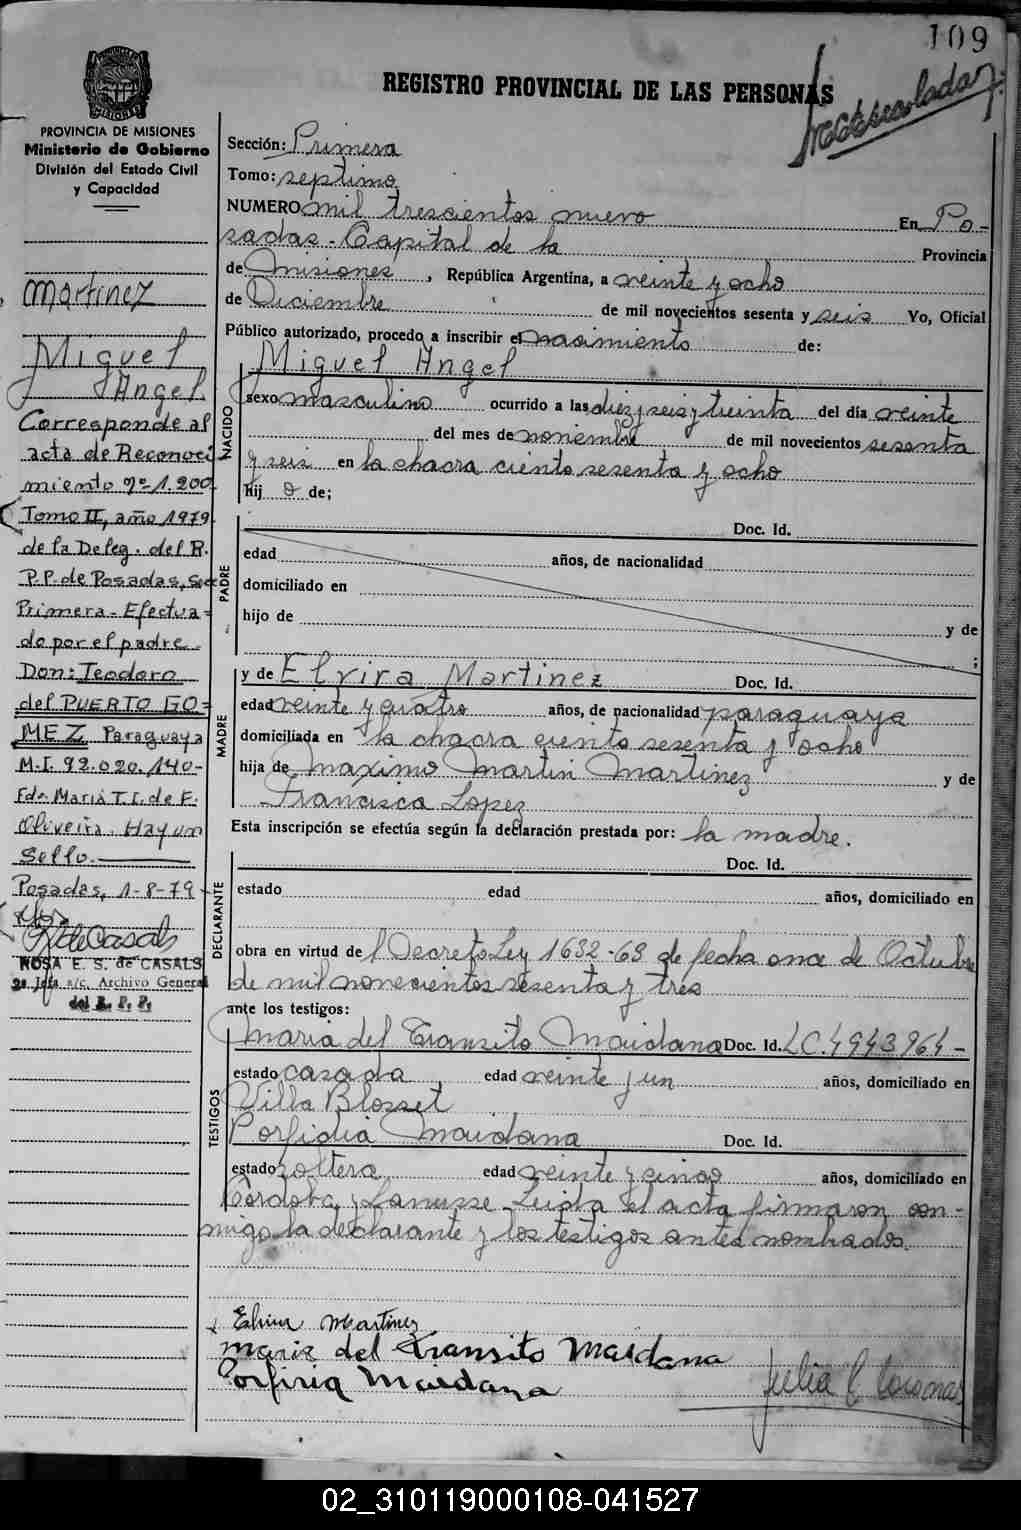 109
REGISTRO PROVINCIAL DE LAS PERSONAS
PROVINCIA DE MISIONES
Ministerio de Gobierno
División del Estado Civil
y Capacidad
Martinez
Miguel
Angel
Corresponde al
acta de Reconoci
miento nº 1.200
Tomo II, año 1979
de la Deleg. del R.
P.P. de Posadas, Sec
Primera - Efectua=
do por el padre
Don: Teodoro
del PUERTO GO=
MEZ Paraguaya
M.I. 92.020.140-
Fdo. Maria T. I. de F.
Oliveira. Hay un
Sello.
Posadas, 1-8-79
R de Casals
ROSA E. S. de CASALS
2ª Jefa a/c. Archivo General
del R. P. P.
Sección: Primera
Tomo: septimo
NUMERO mil trescientos nueve En Po-
sadas - Capital de la Provincia
de Misiones, República Argentina, a veinte y ocho
de Diciembre de mil novecientos sesenta y seis Yo, Oficial
Público autorizado, procedo a inscribir el nacimiento de:
NACIDO
Miguel Angel
sexo masculino ocurrido a las diez y seis y treinta del día veinte
del mes de noviembre de mil novecientos sesenta
y seis en la chacra ciento sesenta y ocho
hij o de;
PADRE
Doc. Id.
edad años, de nacionalidad
domiciliado en
hijo de y de
;
MADRE
y de Elvira Martinez Doc. Id.
edad veinte y cuatro años, de nacionalidad paraguaya
domiciliada en la chacra ciento sesenta y ocho
hija de Maximo Martin Martinez y de
Francisca Lopez
Esta inscripción se efectúa según la declaración prestada por: la madre.
DECLARANTE
Doc. Id.
estado edad años, domiciliado en
obra en virtud de l Decreto Ley 1632-63 de fecha once de Octubre
de mil novecientos sesenta y tres
ante los testigos:
TESTIGOS
Maria del Transito Maidana Doc. Id. LC. 4943.964-
estado casada edad veinte y un años, domiciliado en
Villa Blosset
Porfidia Maidana Doc. Id.
estado soltera edad veinte y cinco años, domiciliado en
Córdoba y Lanusse Leida el acta firmaron con-
migo la declarante y los testigos antes nombrados.
Elvira Martinez
Maria del Transito Maidana
Porfiria Maidana
Julia C
02_310119000108-041527